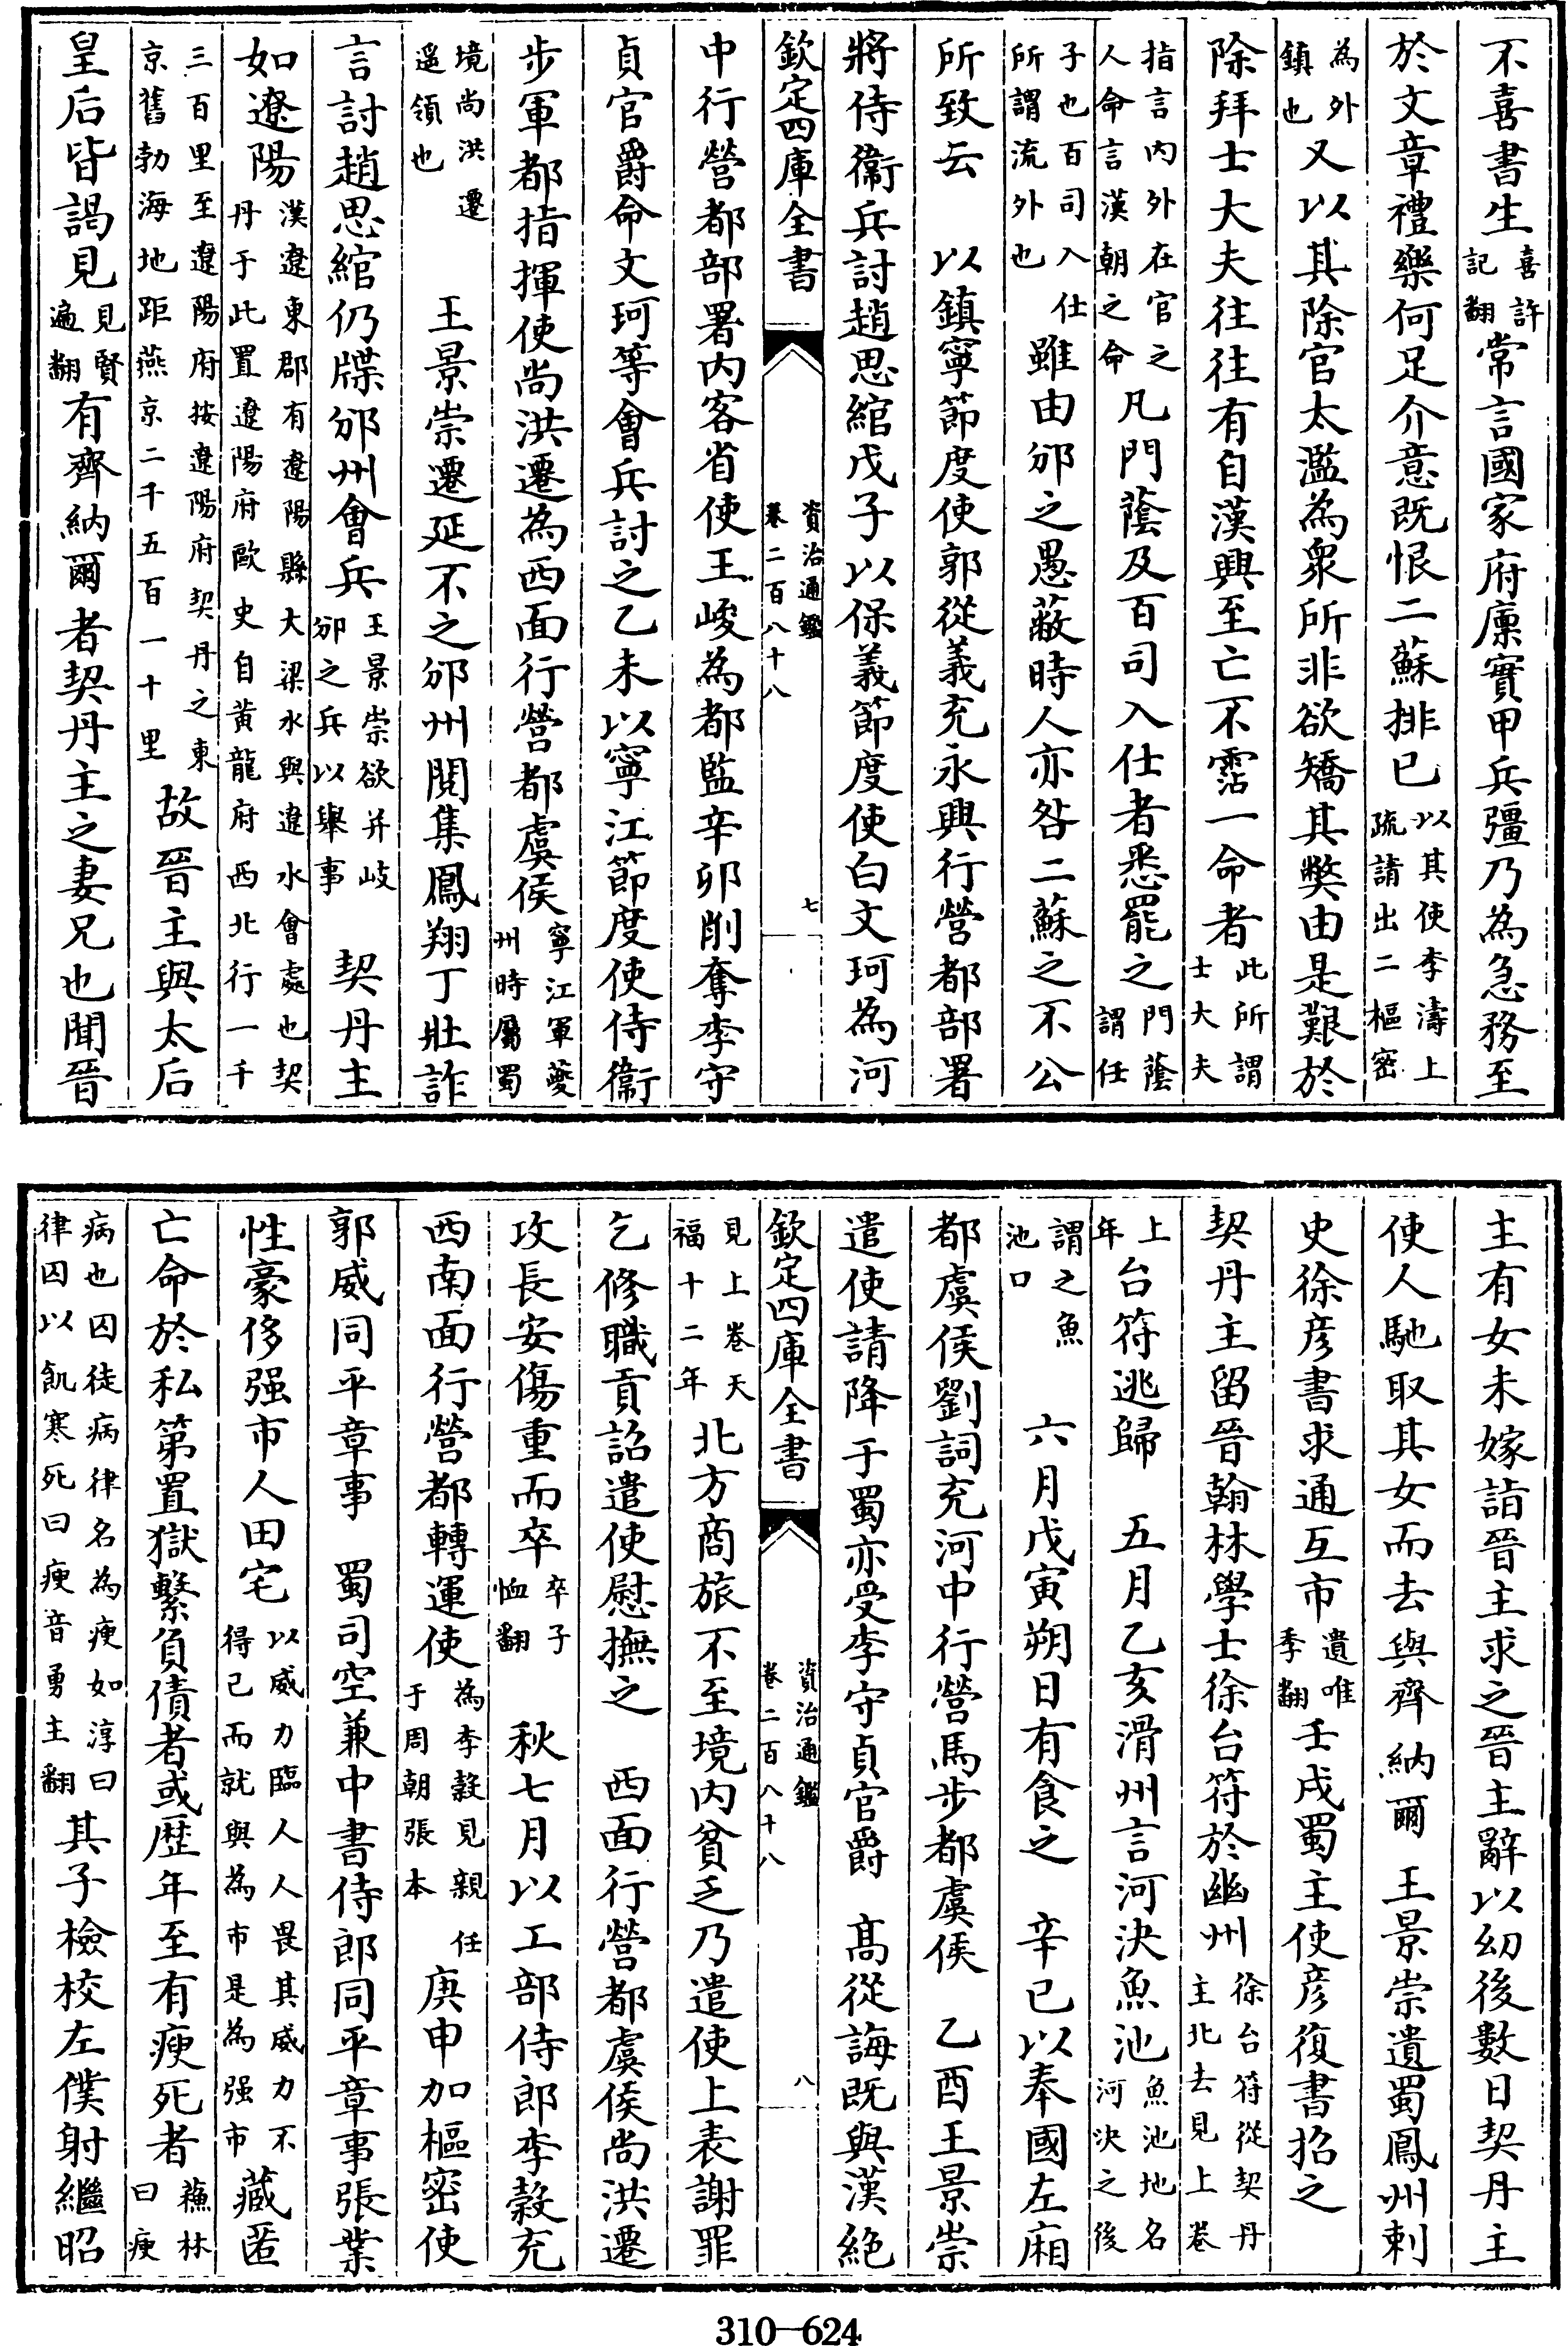 不喜書生喜許記翻常言國家府廩實甲兵彊乃為急務至
於文章禮樂何足介意既恨二蘇排已以其使李濤上疏請出二樞密
為外鎮也又以其除官太濫為衆所非欲矯其弊由是艱於
除拜士大夫往往有自漢興至亡不霑一命者此所謂士大夫
指言内外在官之人命言漢朝之命凡門蔭及百司入仕者悉罷之門蔭謂任
子也百司入仕所謂流外也雖由邠之愚蔽時人亦咎二蘇之不公
所致云　以鎮寧節度使郭從義充永興行營都部署
將侍衞兵討趙思綰戊子以保義節度使白文珂為河
欽定四庫全書　資治通鑑卷二百八十八　七
中行營都部署内客省使王峻為都監辛卯削奪李守
貞官爵命文珂等會兵討之乙未以寧江節度使侍衞
步軍都指揮使尚洪遷為西面行營都虞侯寧江軍夔州時屬蜀
境尚洪遷遥領也　王景崇遷延不之邠州閱集鳳翔丁壯詐
言討趙思綰仍牒邠州會兵王景崇欲并岐邠之兵以舉事　契丹主
如遼陽漢遼東郡有遼陽縣大梁水與遼水會處也契丹于此置遼陽府歐史自黄龍府西北行一千
三百里至遼陽府按遼陽府契丹之東京舊勃海地距燕京二千五百一十里故晉主與太后
皇后皆謁見見賢遍翻有齊納爾者契丹主之妻兄也聞晉
主有女未嫁詣晉主求之晉主辭以幼後數日契丹主
使人馳取其女而去與齊納爾　王景崇遺蜀鳳州刺
史徐彦書求通互市遺唯季翻壬戌蜀主使彦復書招之
契丹主留晉翰林學士徐台符於幽州徐台符從契丹主北去見上卷
上年台符逃歸　五月乙亥滑州言河決魚池魚池地名河決之後
謂之魚池口　六月戊寅朔日有食之　辛已以奉國左廂
都虞侯劉詞充河中行營馬步都虞侯　乙酉王景崇
遣使請降于蜀亦受李守貞官爵　髙從誨既與漢絶
欽定四庫全書　資治通鑑卷二百八十八　八
見上卷天福十二年北方商旅不至境内貧乏乃遣使上表謝罪
乞修職貢詔遣使慰撫之　西面行營都虞侯尚洪遷
攻長安傷重而卒卒子恤翻　秋七月以工部侍郎李穀充
西南面行營都轉運使為李穀見親任于周朝張本　庚申加樞密使
郭威同平章事　蜀司空兼中書侍郎同平章事張業
性豪侈强市人田宅以威力臨人人畏其威力不得已而就與為市是為强市藏匿
亡命於私第置獄繫負債者或歴年至有瘐死者蘓林曰瘐
病也囚徒病律名為瘐如淳曰律囚以飢寒死曰瘐音勇主翻其子檢校左僕射繼昭
310—624